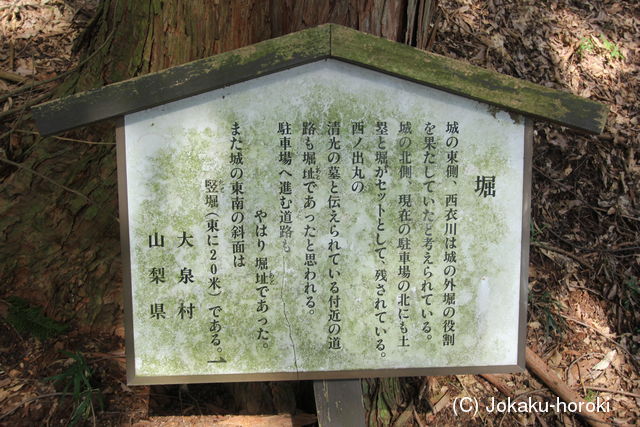 堀
城の東側、西衣川は城の外堀の役割
を果たしていたと考えられている。
城の北側、現在の駐車場の北にも土
塁と堀がセットとして、残されている。
西ノ出丸の
清光の墓と伝えられている付近の道
路も堀址であったと思われる。
駐車場へ進む道路も
やはり堀址であった。
また城の東南の斜面は
竪堀(東に20米)である。
大泉村
山梨県
(C) Jokaku-horoki